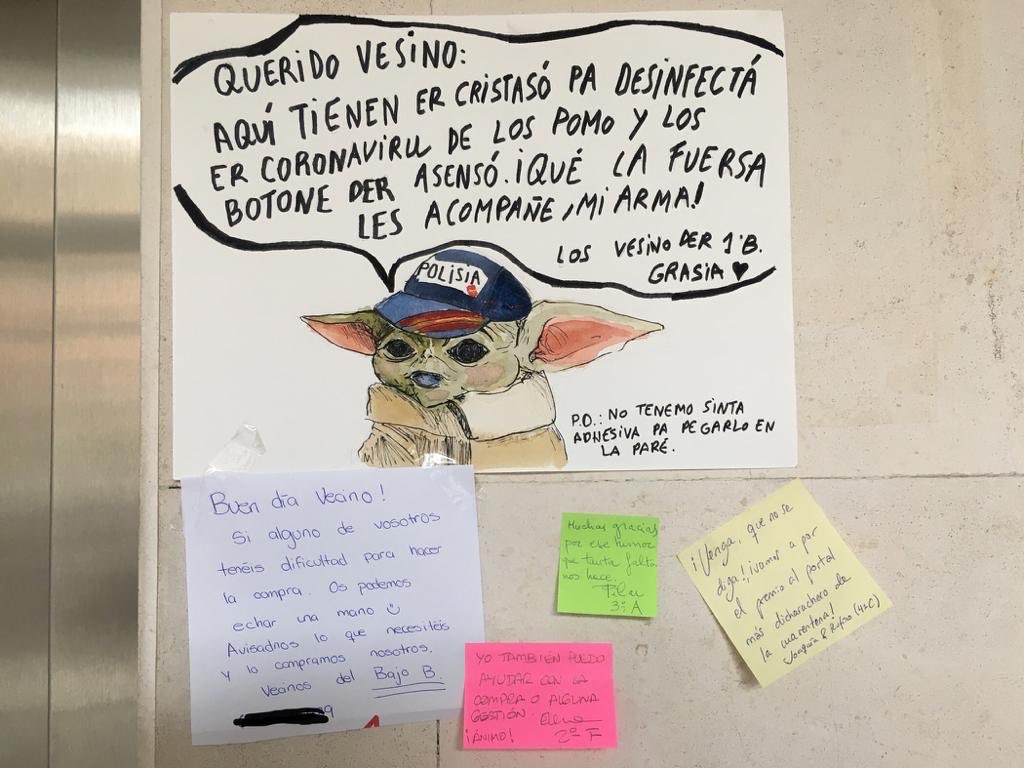 QUERIDO VESINO:
AQUÍ TIENEN ER CRISTASÓ PA DESINFECTÁ
ER CORONAVIRU DE LOS POMO Y LOS
BOTONE DER ASENSÓ. ¡QUÉ LA FUERSA
LES ACOMPAÑE, MI ARMA!
LOS VESINO DER 1ºB.
GRASIA ♥
POLISIA
P.D.: NO TENEMO SINTA
ADHESIVA PA PEGARLO EN
LA PARÉ.
Buen día Vecino!
Si alguno de vosotros
tenéis dificultad para hacer
la compra. Os podemos
echar una mano ☺
Avisadnos lo que necesitéis
y lo compramos nosotros.
Vecinos del Bajo B.
9
Muchas gracias
por ese humor
que tanta falta
nos hace.
Pilu
3º A
YO TAMBIÉN PUEDO
AYUDAR CON LA
COMPRA O ALGUNA
GESTIÓN. Elena
¡ÁNIMO! 2º F
¡Venga, que no se
diga!, ¡vamos a por
el premio al portal
más dicharachero de
la cuarentena!
Joaquín R. Rufino (4º C)